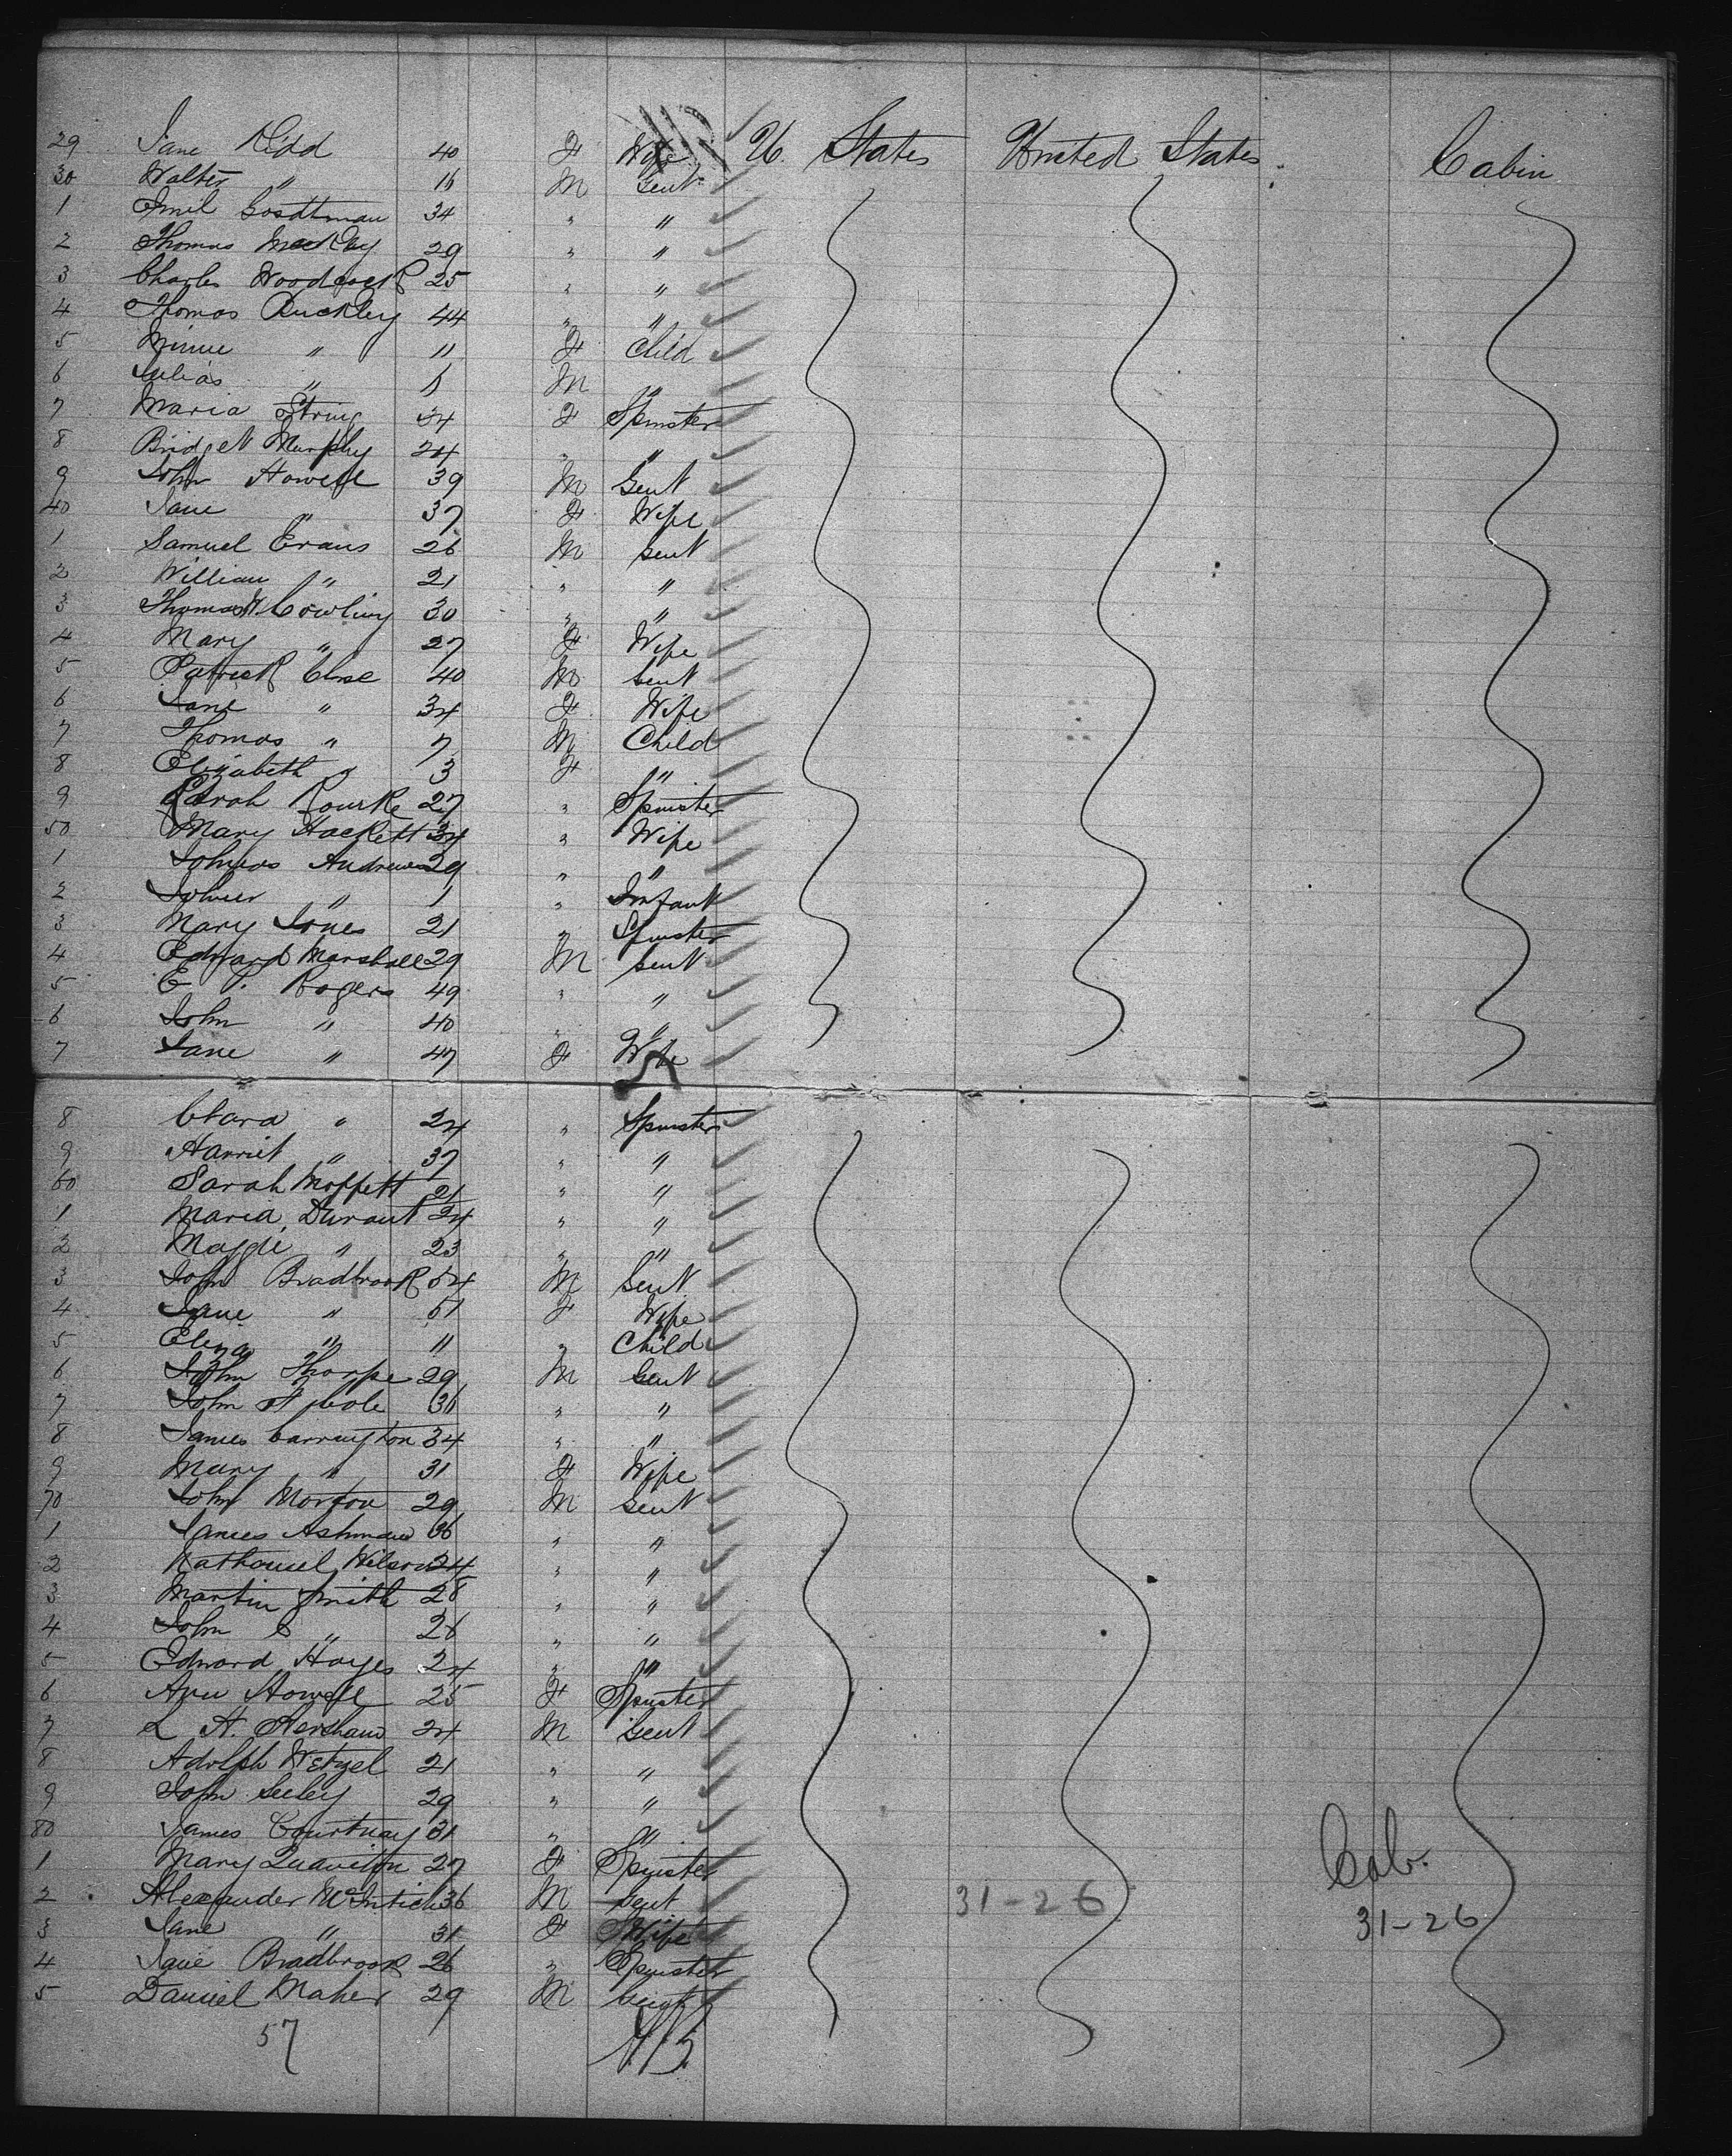 29 Jane Kidd 40 F Wife U. States United States Cabin
30 Walter " 16 M Gent
1 Emil Gosdtman 34 " "
2 Thomas 29 " "
3 Charles Woodcock 25 " "
4 Thomas Buckley 44 " "
5 Minnie " 11 F Child
6 " M "
7 Maria String 24 F Spinster
8 Bridget Murphy 24 " "
9 John Howell 39 M Gent
40 Jane " 37 F Wife
1 Samuel Evans 26 M Gent
2 William " 21 " "
3 Thomas W Cowling 30 " "
4 Mary " 27 F Wife
5 Patrick Close 40 M Gent
6 Jane " 34 F Wife
7 Thomas " 7 M Child
8 Elizabeth " 3 F "
9 Sarah Rourke 27 " Spinster
50 Mary Hackett 34 " Wife
1 Andrews 29 " "
2 " 1 " Infant
3 Mary Jones 21 " Spinster
4 Edward Marshall 29 M Gent
5 E P. Rogers 49 " "
6 John " 40 " "
7 Jane " 47 F Wife
8 Clara " 24 " Spinster
9 Harriet " 37 " "
60 Sarah Moffett 21 " "
1 Maria Durant 24 " "
2 Maggie " 23 " "
3 John Bradbrook 54 M Gent
4 Jane " 51 F Wife
5 Eliza " 11 " Child
6 John Thorpe 29 M Gent
7 John 36 " "
8 James Carrington 34 " "
9 Mary " 31 F Wife
70 John Morton 29 M Gent
1 James Ashman 36 " "
2 Nathaniel Wilson 24 " "
3 Martin Smith 28 " "
4 John S " 26 " "
5 Edward Hayes 24 " "
6 Ann Howell 25 F Spinster
7 L H. Hershaw 24 M Gent
8 Adolph Wetzel 21 " "
9 John Seeley 29 " "
80 James Courtnay 31 " "
1 Mary 27 F Spinster Cab.
2 Alexander McIntich 36 M Gent 31-26
3 Jane " 31 F Wife 31-26
4 Jane Bradbrook 26 " Spinster
5 Daniel Maher 29 M Gent
57